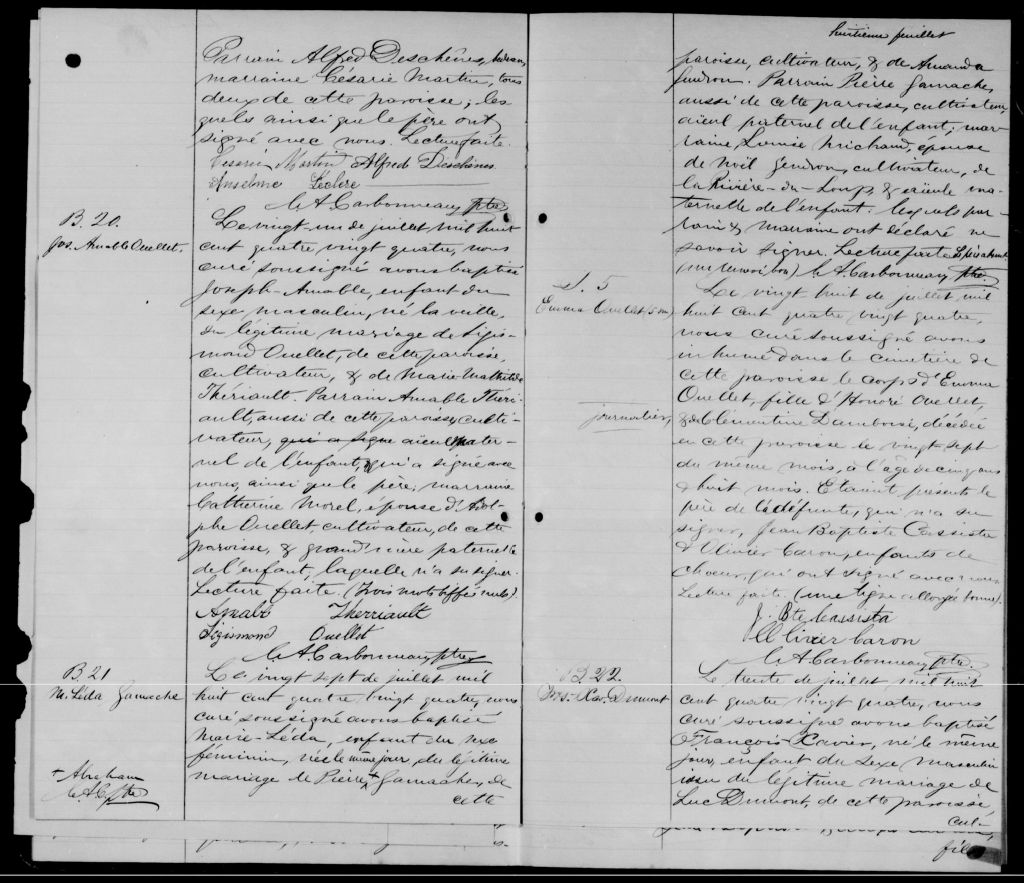 Parrain Alfred Deschênes,
marraine Césarie Martin, tous
deux de cette paroisse; les
quels ainsi que le père ont
signé avec nous. Lecture faite.
Cesarie Martin Alfred Deschênes
Anselme Leclerc
C. A. Carbonneau, ptre
B. 20.
Jos. Amable Ouellet.
Le vingt un de juillet mil huit
cent quatre vingt quatre, nous
curé soussigné avons baptisé
Joseph-Amable, enfant du
sexe masculin, né la veille,
du légitime mariage de Sigis-
mond Ouellet, de cette paroisse,
cultivateur, & de Marie Mathilde
Thériault. Parrain Amable Théri-
ault, aussi de cette paroisse, culti-
vateur, qui a signé aïeul mater-
nel de l'enfant, qui a signé avec
nous, ainsi que le père; marraine
Catherine Morel, épouse d'Adol-
phe Ouellet, cultivateur, de cette
paroisse, & grand'mère paternelle
de l'enfant, laquelle n'a su signer.
Lecture faite. (trois mots biffés nuls).
Amable Therriault
Sigismond Ouellet
C. A. Carbonneau, ptre
B. 21
M. Léda Gamache
Le vingt sept de juillet mil
huit cent quatre vingt quatre, nous
curé soussigné avons baptisé
Marie-Léda, enfant du sexe
féminin, née le même jour, du légitime
mariage de Pierre + Gamache, de
cette
+ Abraham
C. A. C. ptre
huitième feuillet
paroisse, cultivateur, & de Amanda
Gendron. Parrain Pierre Gamache,
aussi de cette paroisse, cultivateur,
aïeul paternel de l'enfant; mar-
raine, Louise Michaud, épouse
de Noël Gendron, cultivateur, de
la Rivière-du-Loup, & aïeule ma-
ternelle de l'enfant. lesquels par-
rain & marraine ont déclaré ne
savoir signer. Lecture faite. le père absent.
(un renvoi bon) C. A. Carbonneau, ptre
S. 5
Emma Ouellet 5 ans
Le vingt huit de juillet mil
huit cent quatre vingt quatre,
nous curé soussigné avons
inhumé dans le cimetière de
cette paroisse le corps d'Emma
Ouellet, fille d'Honoré Ouellet,
journalier,
& de Clémentine Damboise, décédée
en cette paroisse le vingt sept
du même mois, à l'âge de cinq ans
& huit mois. Etaient présents le
père de la défunte, qui n'a su
signer, Jean Baptiste Cassista
& Olivier Caron, enfants de
choeur, qui ont signé avec nous
Lecture faite. (une ligne allongée bonne).
J. Bte Cassista
Olivier Caron
C. A. Carbonneau, ptre.
B. 22.
Frs. Xav. Dumont
Le trente de juillet, mil huit
cent quatre vingt quatre, nous
curé soussigné avons baptisé
François Xavier, né le même
jour, enfant du sexe masculin
issu du légitime mariage de
Luc Dumont, de cette paroisse,
cul-
fille